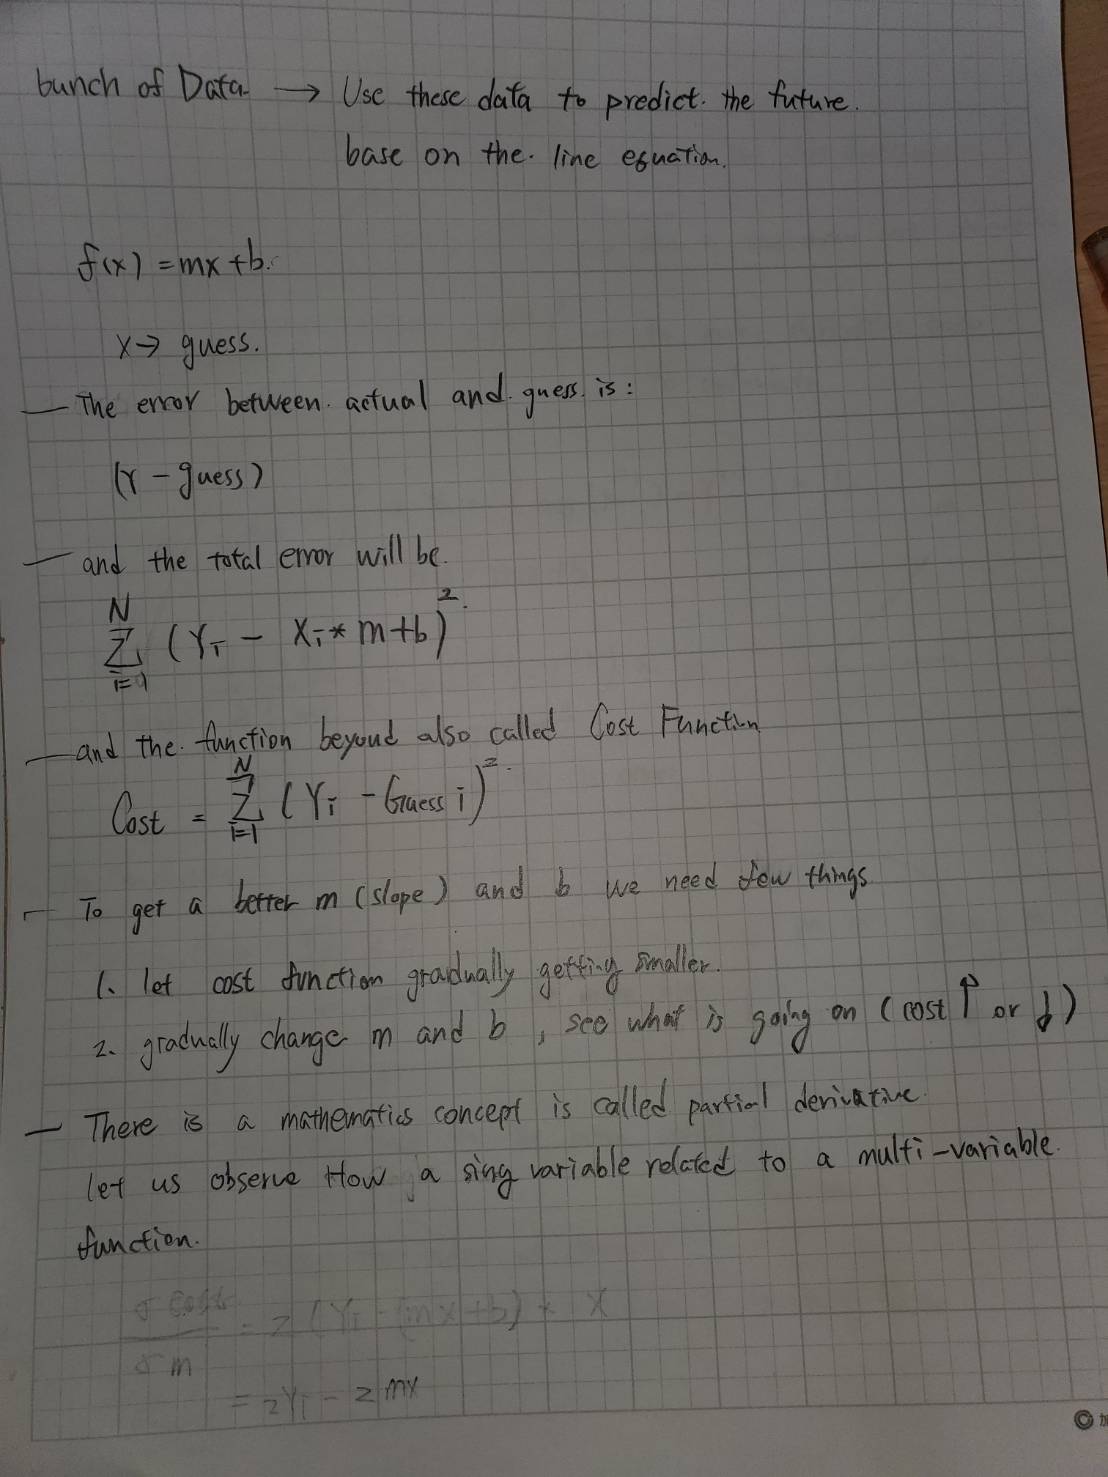 bunch of Data → Use these data to predict. the future.
base on the. line equation.
f(x) = mx + b.
x → guess.
— The error between. actual and. guess. is :
(Y - guess)
— and the total error will be.
N
∑ (Yi - Xi * m + b)²
i=1
— and the. function beyoud also called Cost Function
N
Cost = ∑ (Yi - Guess i)²
i=1
— To get a better m (slope) and b we need few things
1. let cost function gradually getting smaller.
2. gradually change m and b , see what is going on (cost ↑ or ↓)
— There is a mathematics concept is called partial derivative.
let us observe How a sing variable related to a multi-variable.
function.
σ cost
σ m
= 2 (Yi - (mx + b) * X
= 2Yi - 2 mx